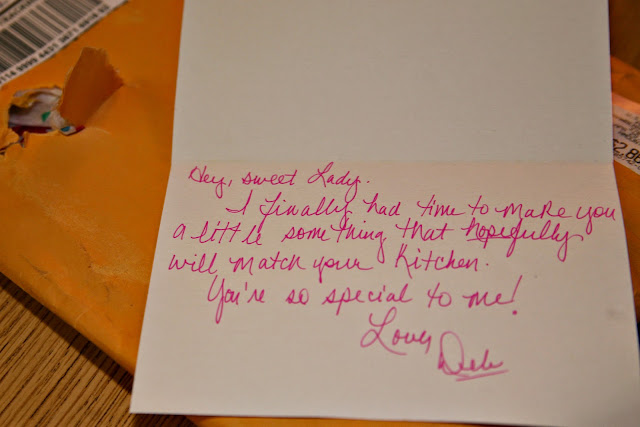 Hey, sweet Lady.
I finally had time to make you
a little something that hopefully
will match your kitchen.
You're so special to me!
Love,
Deb